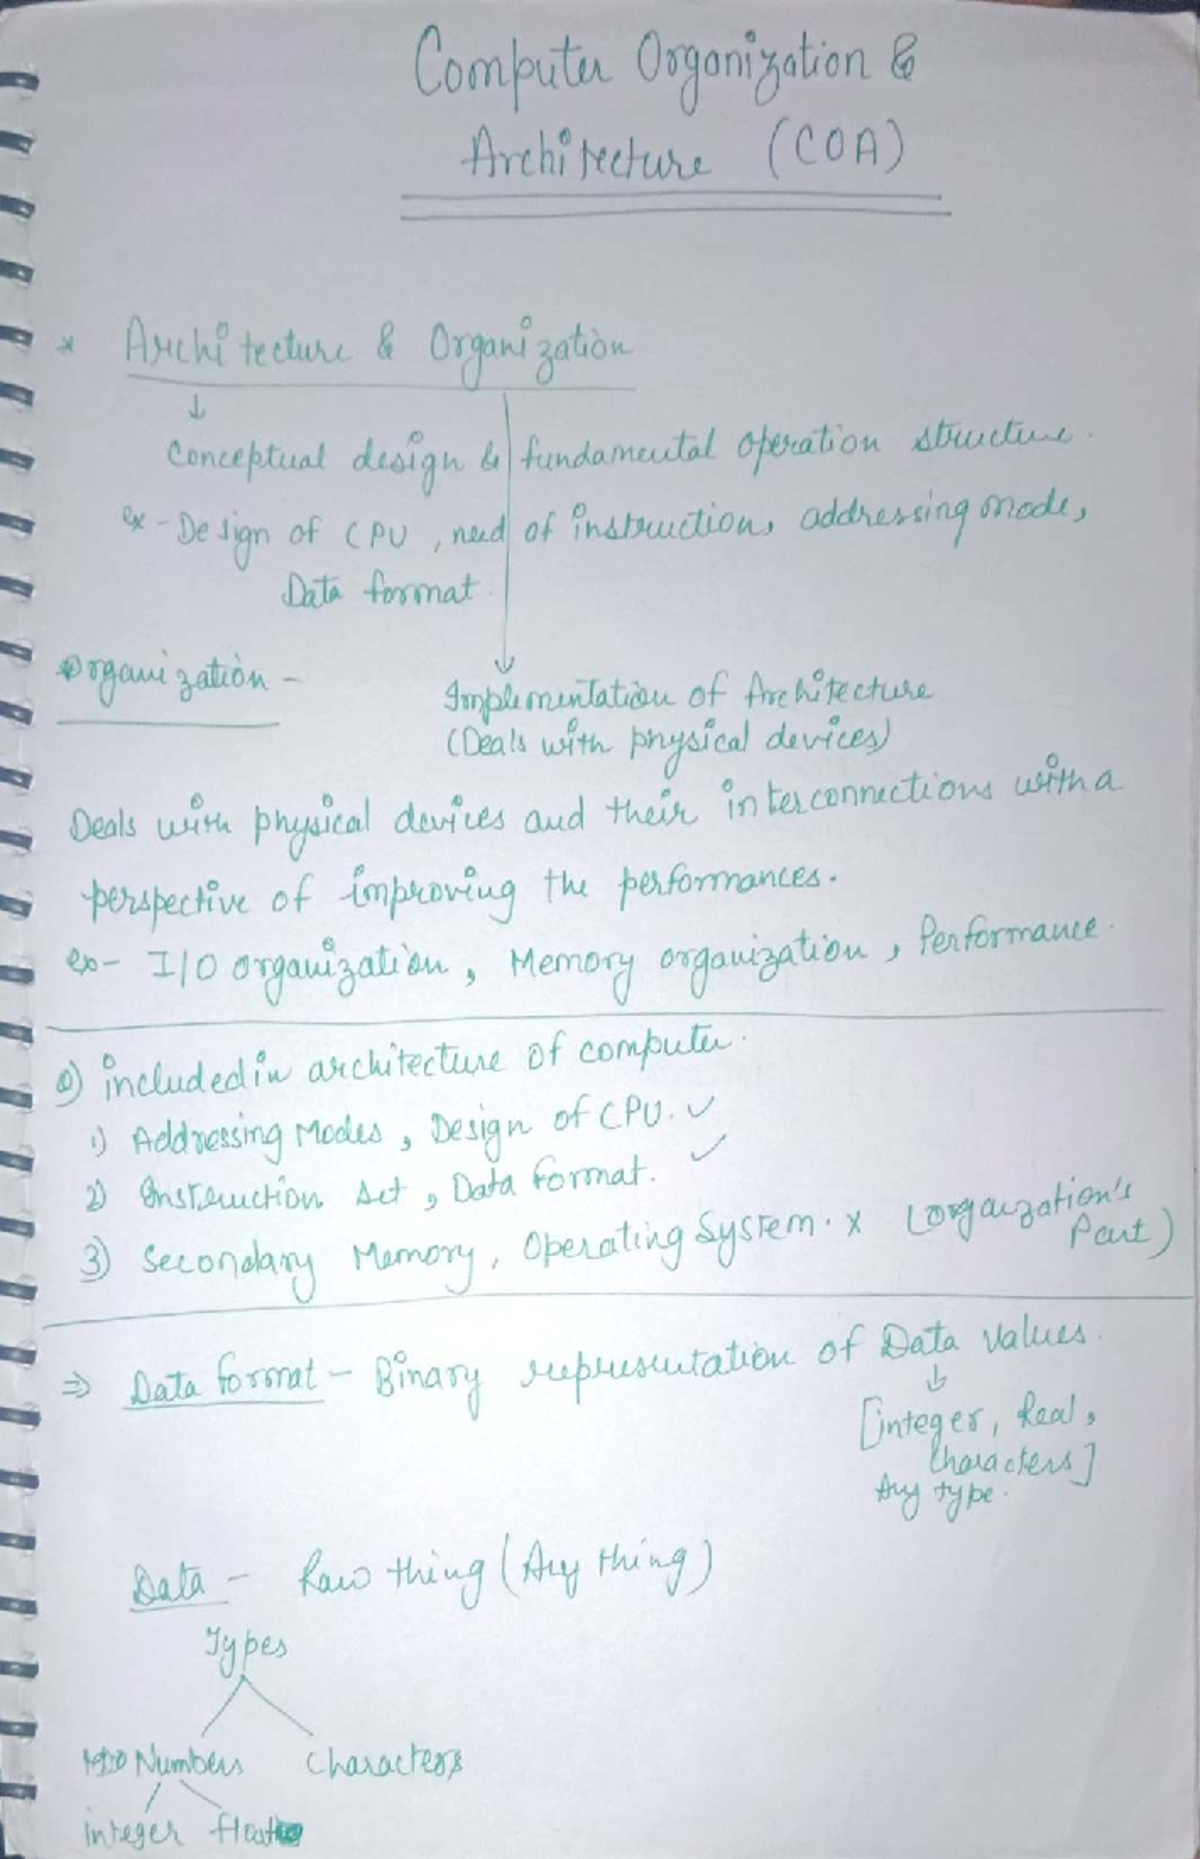 Computer Organization &
Architecture (COA)
* Architecture & Organization
↓
Conceptual design & fundamental operation structure.
ex - Design of CPU, need of instruction, addressing mode,
Data format.
* Organization -
Implementation of Architecture
(Deals with physical devices)
Deals with physical devices and their interconnections with a
perspective of improving the performances.
ex - I/O organization, Memory organization, Performance.
Q) included in architecture of computer.
1) Addressing Modes, Design of CPU. ✓
2) Instruction Set, Data Format. ✓
3) Secondary Memory, Operating System. x (organization's
Part)
⇒ Data format - Binary representation of Data values.
↓
[integer, Real,
Characters]
Any type.
Data - Raw thing (Any thing)
Types
Numbers Characters
integer float